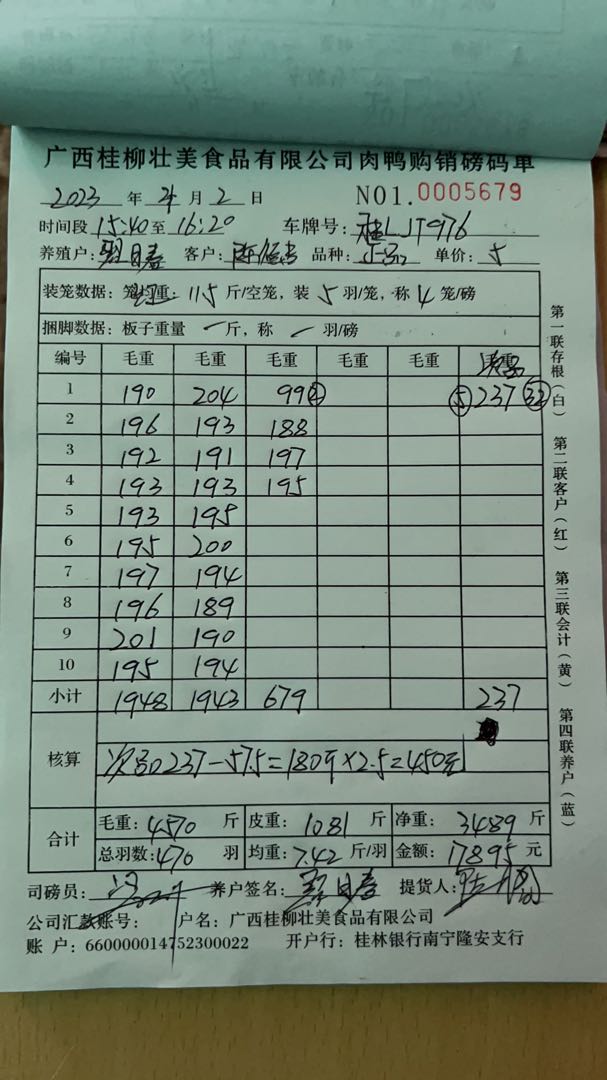 广西桂柳壮美食品有限公司肉鸭购销磅码单
2023 年 4 月 2 日 NO1.0005679
时间段 15:40 至 16:20 车牌号: 桂LJT976
养殖户: 客户: 品种: 正品 单价: 5
装笼数据: 笼均重: 11.5 斤/空笼, 装 5 羽/笼, 称 4 笼/磅
捆脚数据: 板子重量 一 斤, 称 一 羽/磅
编号 毛重 毛重 毛重 毛重 毛重 次品
1 190 204 99 ② ⑤ 237 32
2 196 193 188
3 192 191 197
4 193 193 195
5 193 195
6 195 200
7 197 194
8 196 189
9 201 190
10 195 194
小计 1948 1943 679 237
核算 次品237-57.5=180斤×2.5=450元
合计 毛重: 4570 斤 皮重: 1081 斤 净重: 3489 斤
总羽数: 470 羽 均重: 7.42 斤/羽 金额: 17895 元
司磅员: 养户签名: 提货人:
公司汇款账号: 户名: 广西桂柳壮美食品有限公司
账 户: 660000014752300022 开户行: 桂林银行南宁隆安支行
第一联存根(白) 第二联客户(红) 第三联会计(黄) 第四联养户(蓝)